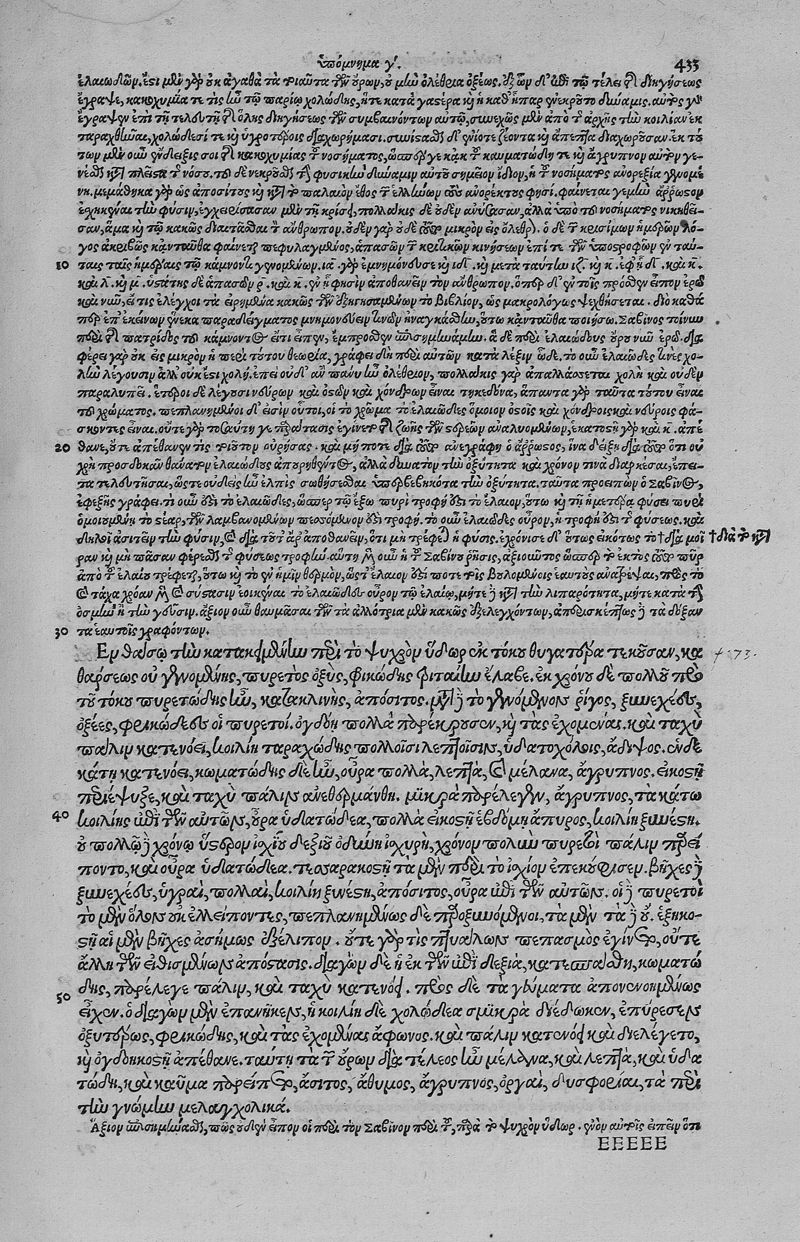 ὑπόμνημα γ´. 433
ἐλαιωδῶν. ἔστι μὲν γὰρ οὐκ ἀγαθὰ τὰ τοιαῦτα τῶν οὔρων, οὐ μὴν ὀλέθρια ὀξέως. ἐξ ὧν δ᾽ ἐπὶ τῷ τέλει τῆς διηγήσεως
ἔγραψε, κακοχυμία τέ τις ἦν τῷ παρίῳ χολώδης, ἥ τε κατὰ γαστέρα καὶ ἡ καθ᾽ ἧπαρ νεκροῦτο δύναμις. αὐτὸς γὰρ
ἔγραψεν ἐπὶ τῇ τελευτῇ τῆς ὅλης διηγήσεως τῶν συμβαινόντων αὐτῷ, συνεχῶς μὲν ἀπὸ τῆς ἀρχῆς τὴν κοιλίαν ἐκ
ταραχθῆναι, χολώδεσί τε καὶ ὑγροτέροις διαχωρήμασι. συνίστασθαι δ᾽ ἐνίοτε ζέοντα καὶ ἄπεπτα διαχωροῦσαν. ἐκ τού
των μὲν οὖν ἔνδειξίς σοι τῆς κακοχυμίας τοῦ νοσήματος, ὥσπερ γε κἀκ τοῦ καυματώδη τε καὶ ἄγρυπνον αὐτὸν γε
νέσθαι μετὰ πλεῖστα τῆς νόσου. τοῦ δὲ νεκροῦσθαι τὴν φυσικὴν δύναμιν αὐτοῦ σημεῖον ἰδίον, ἡ τοῦ νοσήματος ἀνορεξία γενομέ
νη. μεμάθηκα γὰρ ὡς ἀπόσιτος καὶ
ἐχηκέναι τὴν φύσιν, ἐγχειρίσασαν μὲν τῇ κρίσει, πολλάκις δὲ οὐδὲν ἀνύσασαν, ἀλλὰ ὑπὸ τοῦ νοσήματος νικηθεῖ-
σαν, ἅμα καὶ τῷ κακῶς διαιτᾶσθαι τὸν ἄνθρωπον. οὐδὲν γὰρ οὐδὲ μικρὸν εἰς ὄλεθρον. ὁ δὲ τῶν κρισίμων ἡμερῶν λό-
γος ἀκριβῶς κἀνταῦθα φαίνεται πεφυλαγμένος, ἁπασῶν τῶν κριτικῶν κινήσεων ἐπί τε τῶν ὑποστροφῶν ἐν ταύ-
10 ταις ταῖς ἡμέραις τῷ κάμνοντι γινομένων. ια. γὰρ ἐμνημόνευσε καὶ ιδ. καὶ μετὰ ταύτην ιζ. καὶ κ. ἐφεξῆς δ᾽. καὶ κ.
καὶ λ. καὶ μ. ὑστάτης δὲ ἁπασῶν ρ. καὶ κ. ἐν ᾗ φησὶν ἀποθανεῖν τὸν ἄνθρωπον. ὅπερ δ᾽ ἐν τοῖς πρόσθεν εἶπον ἐρῶ
καὶ νῦν, εἴ τις ἐλέγχοι τὰ εἰρημένα κακῶς τῶν ἐξηγησαμένων τὸ βιβλίον, ὡς μακρολόγως ψεχθήσεται. διὸ καθά
περ ἐπ᾽ ἐκείνων ἕνεκα παραδείγματος μνημονεύειν τινῶν ἠναγκάσθην, οὕτω κἀνταῦθα ποιήσω. Σαβῖνος τοίνυν
περὶ τῆς πατρίδος τοῦ κάμνοντος ἔτι εἰπεῖν, ἔμπροσθεν ἐπεσημηνάμην. ἃ δὲ περὶ ἐλαιώδους οὔρου νῦν ἐρῶ. δια
φέρει γὰρ οὐκ εἰς μικρὸν ἡ περὶ τούτου θεωρία, γράφει δὴ περὶ αὐτῶν κατὰ λέξιν ὧδε. τὸ οὖν ἐλαιῶδες τινὲς χο-
λὴν λέγουσιν ἀλλ᾽ οὐκ ἔστι χολή. ἐπεὶ οὐδ᾽ ἂν πάνυ ἦν ὀλέθριον, πολλάκις γὰρ ἀπαλλάσσεται χολὴ καὶ οὐδὲν
παραλυπεῖ. ἕτεροι δὲ λέγουσι νεύρων καὶ ὀστῶν καὶ χόνδρων εἶναι τηκεδόνα, ἅπαντα γὰρ ταῦτα τούτου εἶναι
τοῦ χρώματος. πεπλανημένοι δ᾽ εἰσὶν οὗτοι, οἱ τὸ χρῶμα τὸ ἐλαιῶδες ὅμοιον ὀστοῖς καὶ χόνδροις καὶ νεύροις φά-
σκοντες εἶναι.
20 θανε, οὔτε ἀπέθανέν τις τοιοῦτον οὐρήσας. καὶ μή ποτε διὰ τοῦτο ἀνεγράφη ὁ ἄρρωστος, ἵνα δείξῃ διὰ τοῦτο ὅτι οὐ
χρὴ προσδοκᾶν θάνατον ἐλαιώδους ἀπορηθέντος, ἀλλὰ δυνατὸν τὴν ὀξύτητα καὶ χρόνον τινὰ διαρκέσαι, ἔπει-
τα τελευτῆσαι, ὥστε οὐδεὶς ἦν ἐλπὶς σωθήσεσθαι ὑπερβεβηκότα τὴν ὀξύτητα. ταῦτα προειπὼν ὁ Σαβῖνος,
ἐφεξῆς γράφει. τί οὖν ἐστι τὸ ἐλαιῶδες, ὥσπερ τῷ ἔξω πυρὶ τροφή ἐστι τὸ ἔλαιον, οὕτω καὶ τῇ ἡμετέρᾳ φύσει πυρὶ
ὁμοιουμένῃ τὸ στέαρ, τῶν λαμβανομένων πεσσόμενον ἐστι τροφή. τὸ οὖν ἐλαιῶδες οὖρον, ἡ τροφή ἐστι τῆς φύσεως. καὶ
δηλοῖ ἀσιτεῖν τὴν φύσιν, καὶ διὰ τοῦτο ἄρ᾽ ἀποθανεῖν, ὅτι μὴ τρέφεται ἡ φύσις. ἐχρόνισε δ᾽ οὕτως εἰκότως τὸ †διαμοῖ †διὰ τὸ μετὰ
ραν καὶ μὴ πᾶσαν φέρεσθαι τῆς φύσεως τροφήν. αὕτη μὲν οὖν ἡ τοῦ Σαβίνου ῥῆσις, ἀξιοῦντος ὥσπερ τὸ ἐκτὸς πῦρ
ἀπὸ τοῦ ἐλαίου τρέφεται, οὕτω καὶ τὸ ἐν ἡμῖν θερμὸν, ὡς τοῦ ἔλαιον
ὀσμὴν ἢ τὴν γεῦσιν. ἄξιον οὖν θαυμάσαι τῶν τὰ ἀλλότρια μὲν κακῶς ἐξελεγχόντων, ἀπερισκέπτως δὲ τὰ δόξαν
30 τα ἑαυτοῖς γραφόντων.
Ἐν θάσῳ τὴν κατακειμένην περὶ τὸ ψυχρὸν ὕδωρ ἐκ τόκου θυγατέρα τεκοῦσαν, κα
θάρσεως οὐ γενομένης, πυρετὸς ὀξὺς, φρικώδης τριταίην ἔλαβε. ἐκ χρόνου δὲ πολλοῦ πρὸ
τοῦ τόκου πυρετώδης ἦν, κατακλινὴς, ἀπόσιτος. μετὰ δὲ τὸ γενόμενον ῥῖγος, ξυνεχέες,
ὀξέες, φρικώδεες οἱ πυρετοί. ὀγδόῃ πολλὰ παρέκρουσεν, καὶ τὰς ἐχομένας. καὶ ταχὺ
πάλιν κατενόει, κοιλίη ταραχώδης πολλοῖσι λεπτοῖσιν, ὑδατοχόλοις, ἄδιψος. ἑνδε
κάτῃ κατενόει, κωματώδης δὲ ἦν, οὖρα πολλὰ, λεπτὰ, καὶ μέλανα, ἄγρυπνος. εἰκοστῇ
περιέψυξε, καὶ ταχὺ πάλιν ἀνεθερμάνθη. μικρὰ παρέλεγεν, ἄγρυπνος, τὰ κάτω
40 κοιλίης ἐπὶ τῶν αὐτῶν, οὖρα ὑδατώδεα, πολλά. εἰκοστῇ ἑβδόμῃ ἄπυρος, κοιλίη ξυνέστη.
οὐ πολλῷ δὲ χρόνῳ ὕστερον ἰσχίου δεξιοῦ ὀδύνη ἰσχυρὴ, χρόνον πολὺν πυρετοὶ πάλιν παρεί
ποντο, καὶ οὖρα ὑδατώδεα. τεσσαρακοστῇ τὰ μὲν περὶ τὸ ἰσχίον ἐπεκούφισεν. βῆχες δὲ
ξυνεχέες, ὑγραὶ, πολλαὶ, κοιλίη ξυνέστη, ἀπόσιτος, οὖρα ἐπὶ τῶν αὐτῶν. οἱ δὲ πυρετοὶ
τὸ μὲν ὅλον οὐκ ἐλλείποντες, πεπλανημένως δὲ παροξυνόμενοι, τὰ μὲν τὰ δ᾽ οὔ. ἑξηκο-
στῇ αἱ μὲν βῆχες ἀσήμως ἐξέλιπον. οὔτε γάρ τις πτυάλων πεπασμὸς ἐγίνετο, οὔτε
ἄλλη τῶν εἰθισμένων ἀπόστασις. σιαγὼν δὲ ἡ ἐκ τῶν ἐπὶ δεξιὰ, κατεσπάσθη, κωματώ
50 δης, παρέλεγε πάλιν, καὶ ταχὺ κατενόει. πρὸς δὲ τὰ γεύματα ἀπονενοημένως
εἶχεν. ὁ σιαγὼν μὲν ἐπανῆκεν, ἡ κοιλίη δὲ χολώδεα σμικρὰ διέδωκεν, ἐπύρεσεν
ὀξυτέρως, φρικώδης, καὶ τὰς ἐχομένας ἄφωνος. καὶ πάλιν κατενόει καὶ διελέγετο,
καὶ ὀγδοηκοστῇ ἀπέθανε. ταύτῃ τὰ τῶν οὔρων διὰ τέλεος ἦν μέλανα, καὶ λεπτὰ, καὶ ὑδα
τώδη, καὶ κῶμα παρείπετο, ἄσιτος, ἄθυμος, ἄγρυπνος, ὀργαὶ, δυσφορίαι, τὰ περὶ
τὴν γνώμην μελαγχολικά.
Ἄξιον ἐπισημήνασθαι, πῶς ἐν
EEEEE